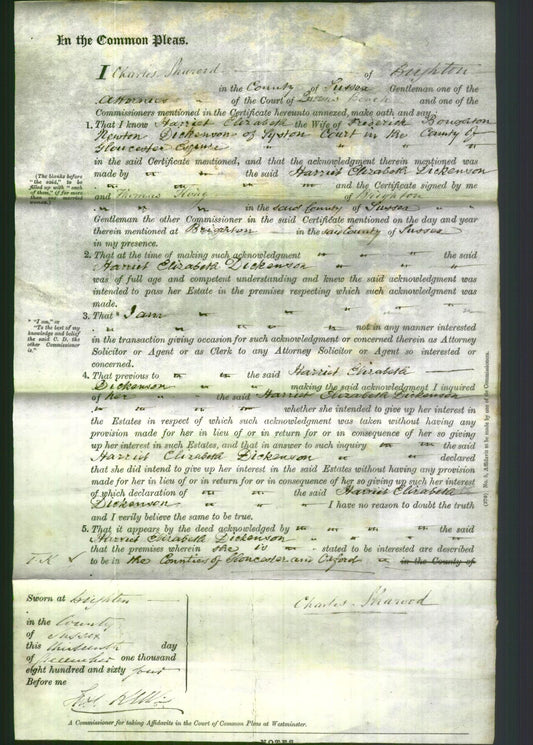 In the Common Pleas.
I Charles Sharood of Brighton
in the County of Sussex Gentleman one of the
Attornies of the Court of Queens Bench and one of the
Commissioners mentioned in the Certificate hereunto annexed, make oath and say
1. That I know Harriet Elizabeth the Wife of Frederick
Newton Dickenson of Syston Court in the County of
Gloucester Esquire
in the said Certificate mentioned, and that the acknowledgment therein mentioned was
made by the said Harriet Elizabeth Dickenson
and the Certificate signed by me
and Thomas of Brighton
in the said County of Sussex
Gentleman the other Commissioner in the said Certificate mentioned on the day and year
therein mentioned at Brighton in the said County of Sussex
in my presence.
(The blanks before
"the said," to be
filled up with "each
of them," if for more
than one married
woman.)
2. That at the time of making such acknowledgment the said
Harriet Elizabeth Dickenson
was of full age and competent understanding and knew the said acknowledgment was
intended to pass her Estate in the premises respecting which such acknowledgment was
made.
3. That I am
not in any manner interested
in the transaction giving occasion for such acknowledgment or concerned therein as Attorney
Solicitor or Agent or as Clerk to any Attorney Solicitor or Agent so interested or
concerned.
"I am," or
"To the best of my
knowledge and belief
the said C. D. the
other Commissioner
is."
4. That previous to the said Harriet Elizabeth
Dickenson making the said acknowledgment I inquired
of her the said Harriet Elizabeth Dickenson
whether she intended to give up her interest in
the Estates in respect of which such acknowledgment was taken without having any
provision made for her in lieu of or in return for or in consequence of her so giving
up her interest in such Estates, and that in answer to such inquiry the said
Harriet Elizabeth Dickenson declared
that she did intend to give up her interest in the said Estates without having any provision
made for her in lieu of or in return for or in consequence of her so giving up such her interest
of which declaration of the said Harriet Elizabeth
Dickenson I have no reason to doubt the truth
and I verily believe the same to be true.
5. That it appears by the deed acknowledged by the said
Harriet Elizabeth Dickenson
that the premises wherein she is stated to be interested are described
to be in the Counties of Gloucester and Oxford in the County of
Charles Sharood
Sworn at Brighton
in the County
of Sussex
this thirteenth day
of December one thousand
eight hundred and sixty four
Before me
A Commissioner for taking Affidavits in the Court of Common Pleas at Westminster.
NOTES